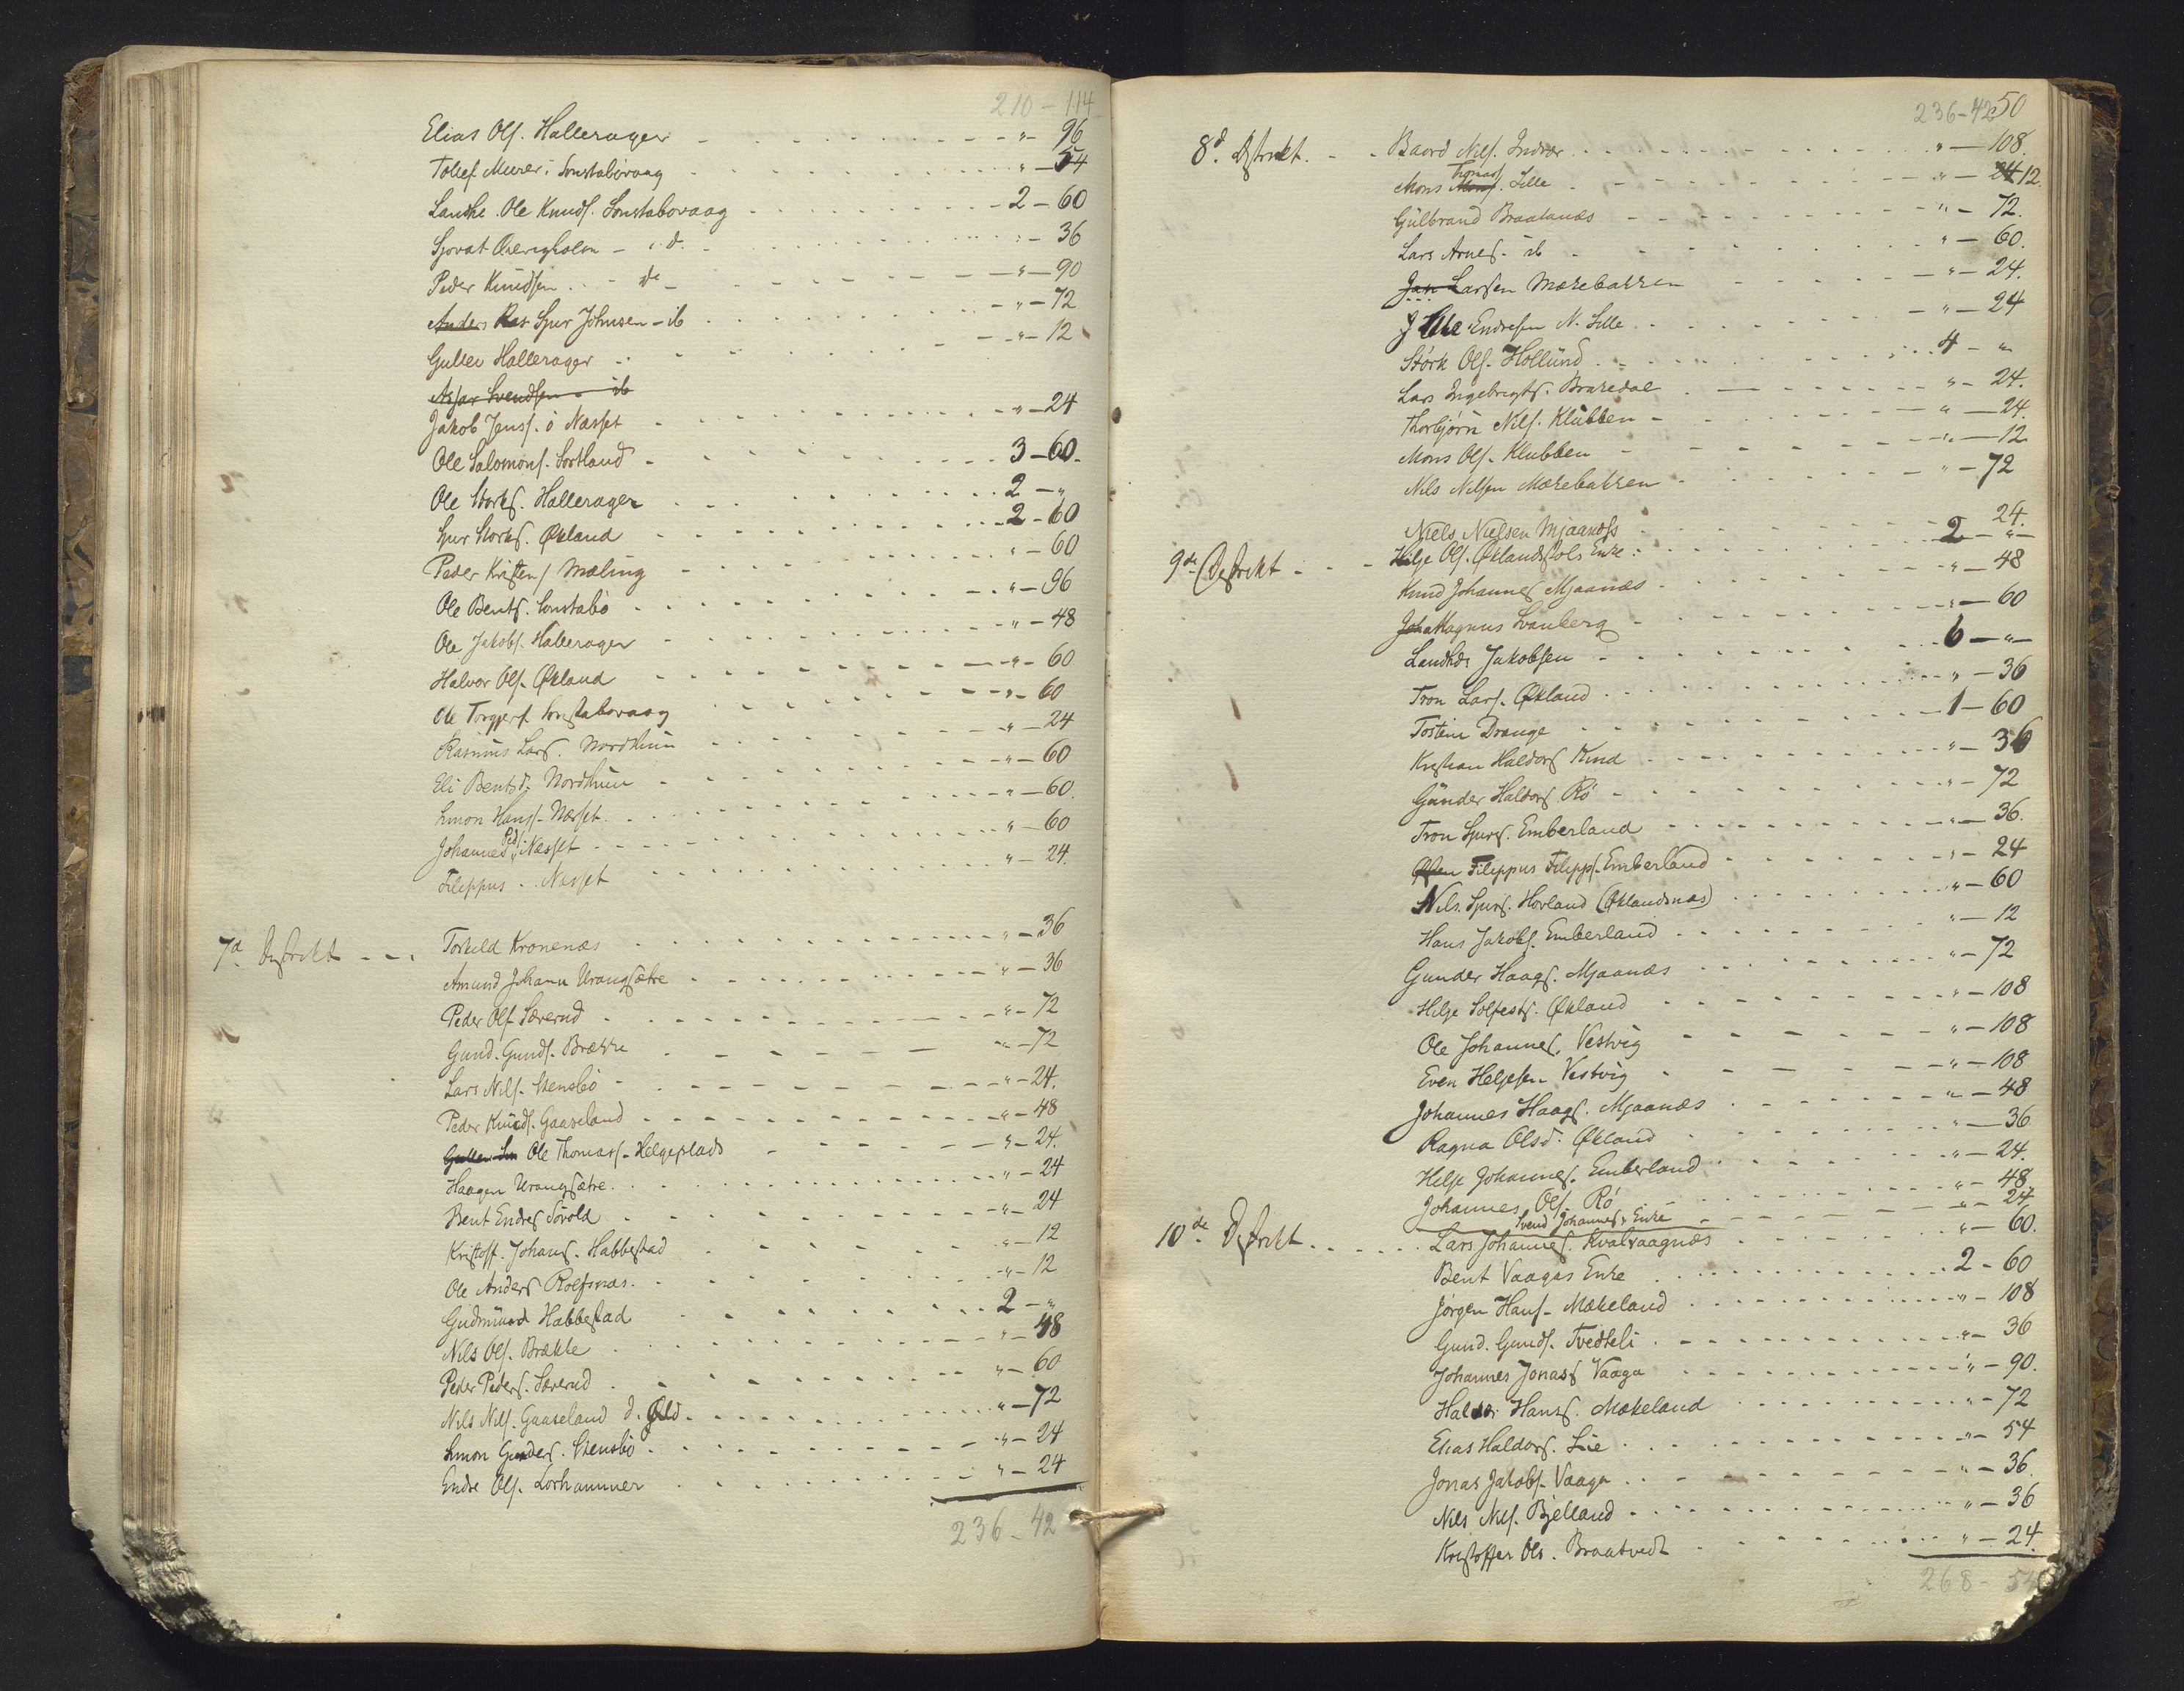 210 - 114
Elias Ols. Hallerager - " - 96
Tollef Murer i Sonstabøvaag " - 54
Lauske Ole Knuds. Sonstabovaag - 2 - 60
Sjovat - i. d. " - 36
Peder Knudsen - de - " - 90
Anders Ras Spur Johnsen - ib - " - 72
Guller Hallerager - " - 12
Assar Svendsen - ib
Jakob Jens. i Næsset - " - 24
Ole Salomons. Sortland - 3 - 60.
Ole Storks. Hallerager 2 - "
Spur Storks. Økland 2 - 60
Peder Kristens Mæling " - 60
Ole Bents. Sonstabø " - 96
Ole Jakobs. Hallerager " - 48
Halvor Ols. Økland " - 60
Ole Torgjers. Sonstabovaag " - 60
Rasmus Lars. Nordhuun " - 24
Eli Bentsd. Nordhuun " - 60
Simon Hans. Næsset " - 60.
Johannes Peds. Næsset " - 60
Filippus Næsset " - 24.
7d Distrikt - - - Torkild Kronenæs " - 36
Amund Johann Vrangsætre " - 36
Peder Ols. Særevd " - 72
Gund. Gunds. Brække " - 72
Lars Nils. Stensbø - " - 24.
Peder Knuds. Gaaseland " - 48
Ole Thomas. Helgeplads " - 24.
Haagen Vrangsætre " - 24
Bent Endres Sövold " - 24
Kristoff. Johans. Habbestad " - 12
Ole Anders Rolfsnæs. " - 12
Gudmund Habbestad 2 - "
Nils Ols. Brække " - 48
Peder Peders. Særevd " - 60
Nils Nils. Gaaseland d. Æld. " - 72
Simon Gunders. Stensbø " - 24
Endre Ols. Lorhammer " - 24
236 - 42
236-42 50
8d. Distrikt. - - Baard Nils. Indvær " - 108.
Mons Mons. Thomas Lille " - 24 12.
Gulbrand Braatanæs " - 72.
Lars Arnes. ib " - 60.
Jan Larsen Mærebakken " - 24.
Endresen N. Lille " - 24
Størk Ols. Hollund 4 - "
Lars Ingebrigts. Braredal " - 24.
Thorbjørn Nils. Klubben " - 24.
Mons Ols. Klubben " - 12
Nils Nilsen Mærebakken " - 72
Niels Nielsen Mjaanæs 24.
9de Distrikt - - - Hilje Ols. Øklandshols Enke 2 - "
Knud Johannes Mjaanæs " - 48
Joh Magnus Svanberg " - 60
Landhdr Jakobsen 6 - "
Tron Lars. Økland " - 36
Tosten Drange 1 - 60
Kristian Haldors Kind " - 36
Gunder Haldors Rø " - 72
Tron Spurs. Emberland " - 36.
Filippus Filipps. Emberland " - 24
Nils. Spurs. Hovland (Øklandsnæs) " - 60
Hans Jakobs. Emberland " - 12
Gunder Haags. Mjaanæs " - 72
Hilje Solfests. Økland " - 108
Ole Johannes. Vestvig " - 108
Even Heljesen Vestvig " - 108
Johannes Haags. Mjaanæs " - 48
Ragna Olsd. Økland " - 36
Helje Johannes. Emberland " - 24.
Johannes Ols. Rø " - 48
Svend Johannes. Enke " - 24
10de Distrikt Lars Johannes. Kvalvaagnæs " - 60.
Bent Vaages Enke 2 - 60
Jørgen Hans. Mækeland " - 108
Gund. Gunds. Tvedteli " - 36
Johannes Jonass Vaage " - 90.
Haldor Hans. Mækeland " - 72
Elias Haldors. Lie " - 54
Jonas Jakobs. Vaage " - 36.
Nils Nils. Bjelland " - 36
Kristoffer Ols. Braatvedt " - 24.
268 - 54